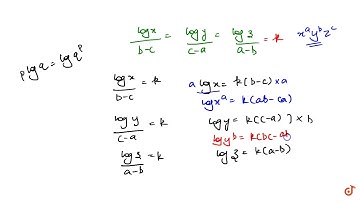 log x / b-c = log y / c-a = log z / a-b = k
x^a y^b z^c
p log a = log a^p
log x / b-c = k
a log x = k(b-c) × a
log x^a = k(ab - ca)
log y / c-a = k
log y = k(c-a) } × b
log y^b = k(bc - ab
log z / a-b = k
log z = k(a-b)